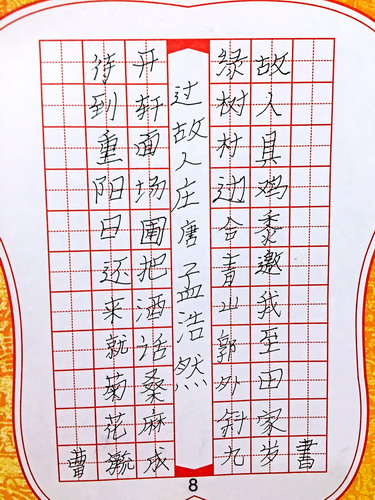 故人具鸡黍邀我至田家
绿树村边合青山郭外斜
过故人庄 唐 孟浩然
开轩面场圃把酒话桑麻
待到重阳日还来就菊花
曹 成九岁書
8